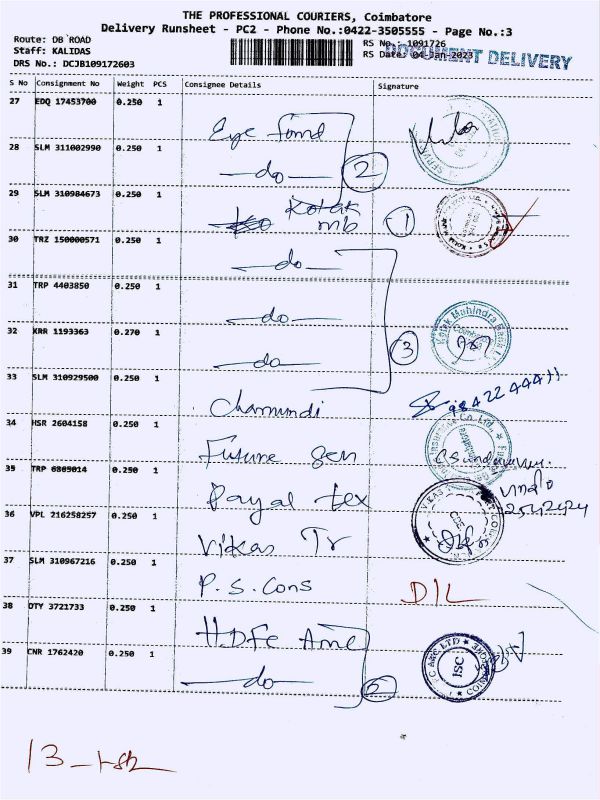 THE PROFESSIONAL COURIERS, Coimbatore
Delivery Runsheet - PC2 - Phone No.:0422-3505555 - Page No.:3
Route: DB ROAD
RS No.: 1091726
Staff: KALIDAS
RS Date: 04-Jan-2023
DOCUMENT DELIVERY
DRS No.: DCJB109172603
S No Consignment No Weight PCS Consignee Details Signature
27 EDQ 17453700 0.250 1 Eye found
28 SLM 311002990 0.250 1 —do— 2
29 SLM 310984673 0.250 1 Kotak mb 1
30 TRZ 150000571 0.250 1 —do—
31 TRP 4403850 0.250 1 —do—
32 KRR 1193363 0.270 1 —do— 3
Kotak Mahindra Bank
33 SLM 310929500 0.250 1 Chamundi
34 HSR 2604158 0.250 1 Future Gen
Insurance Co. Ltd.
35 TRP 6865014 0.250 1 Payal tex
36 VPL 216258257 0.250 1 Vikas Tr
37 SLM 310967216 0.250 1 P.S. Cons D/L
38 OTY 3721733 0.250 1 HDFC Amc
39 CNR 1762420 0.250 1 —do—
ISC
13